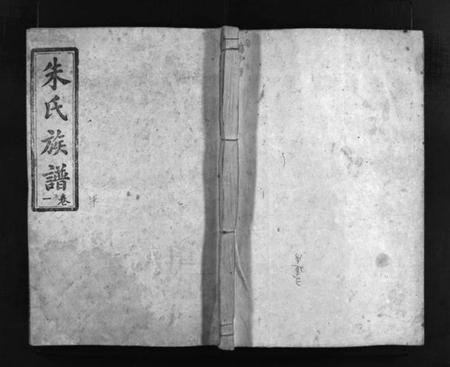 朱氏族譜
卷一